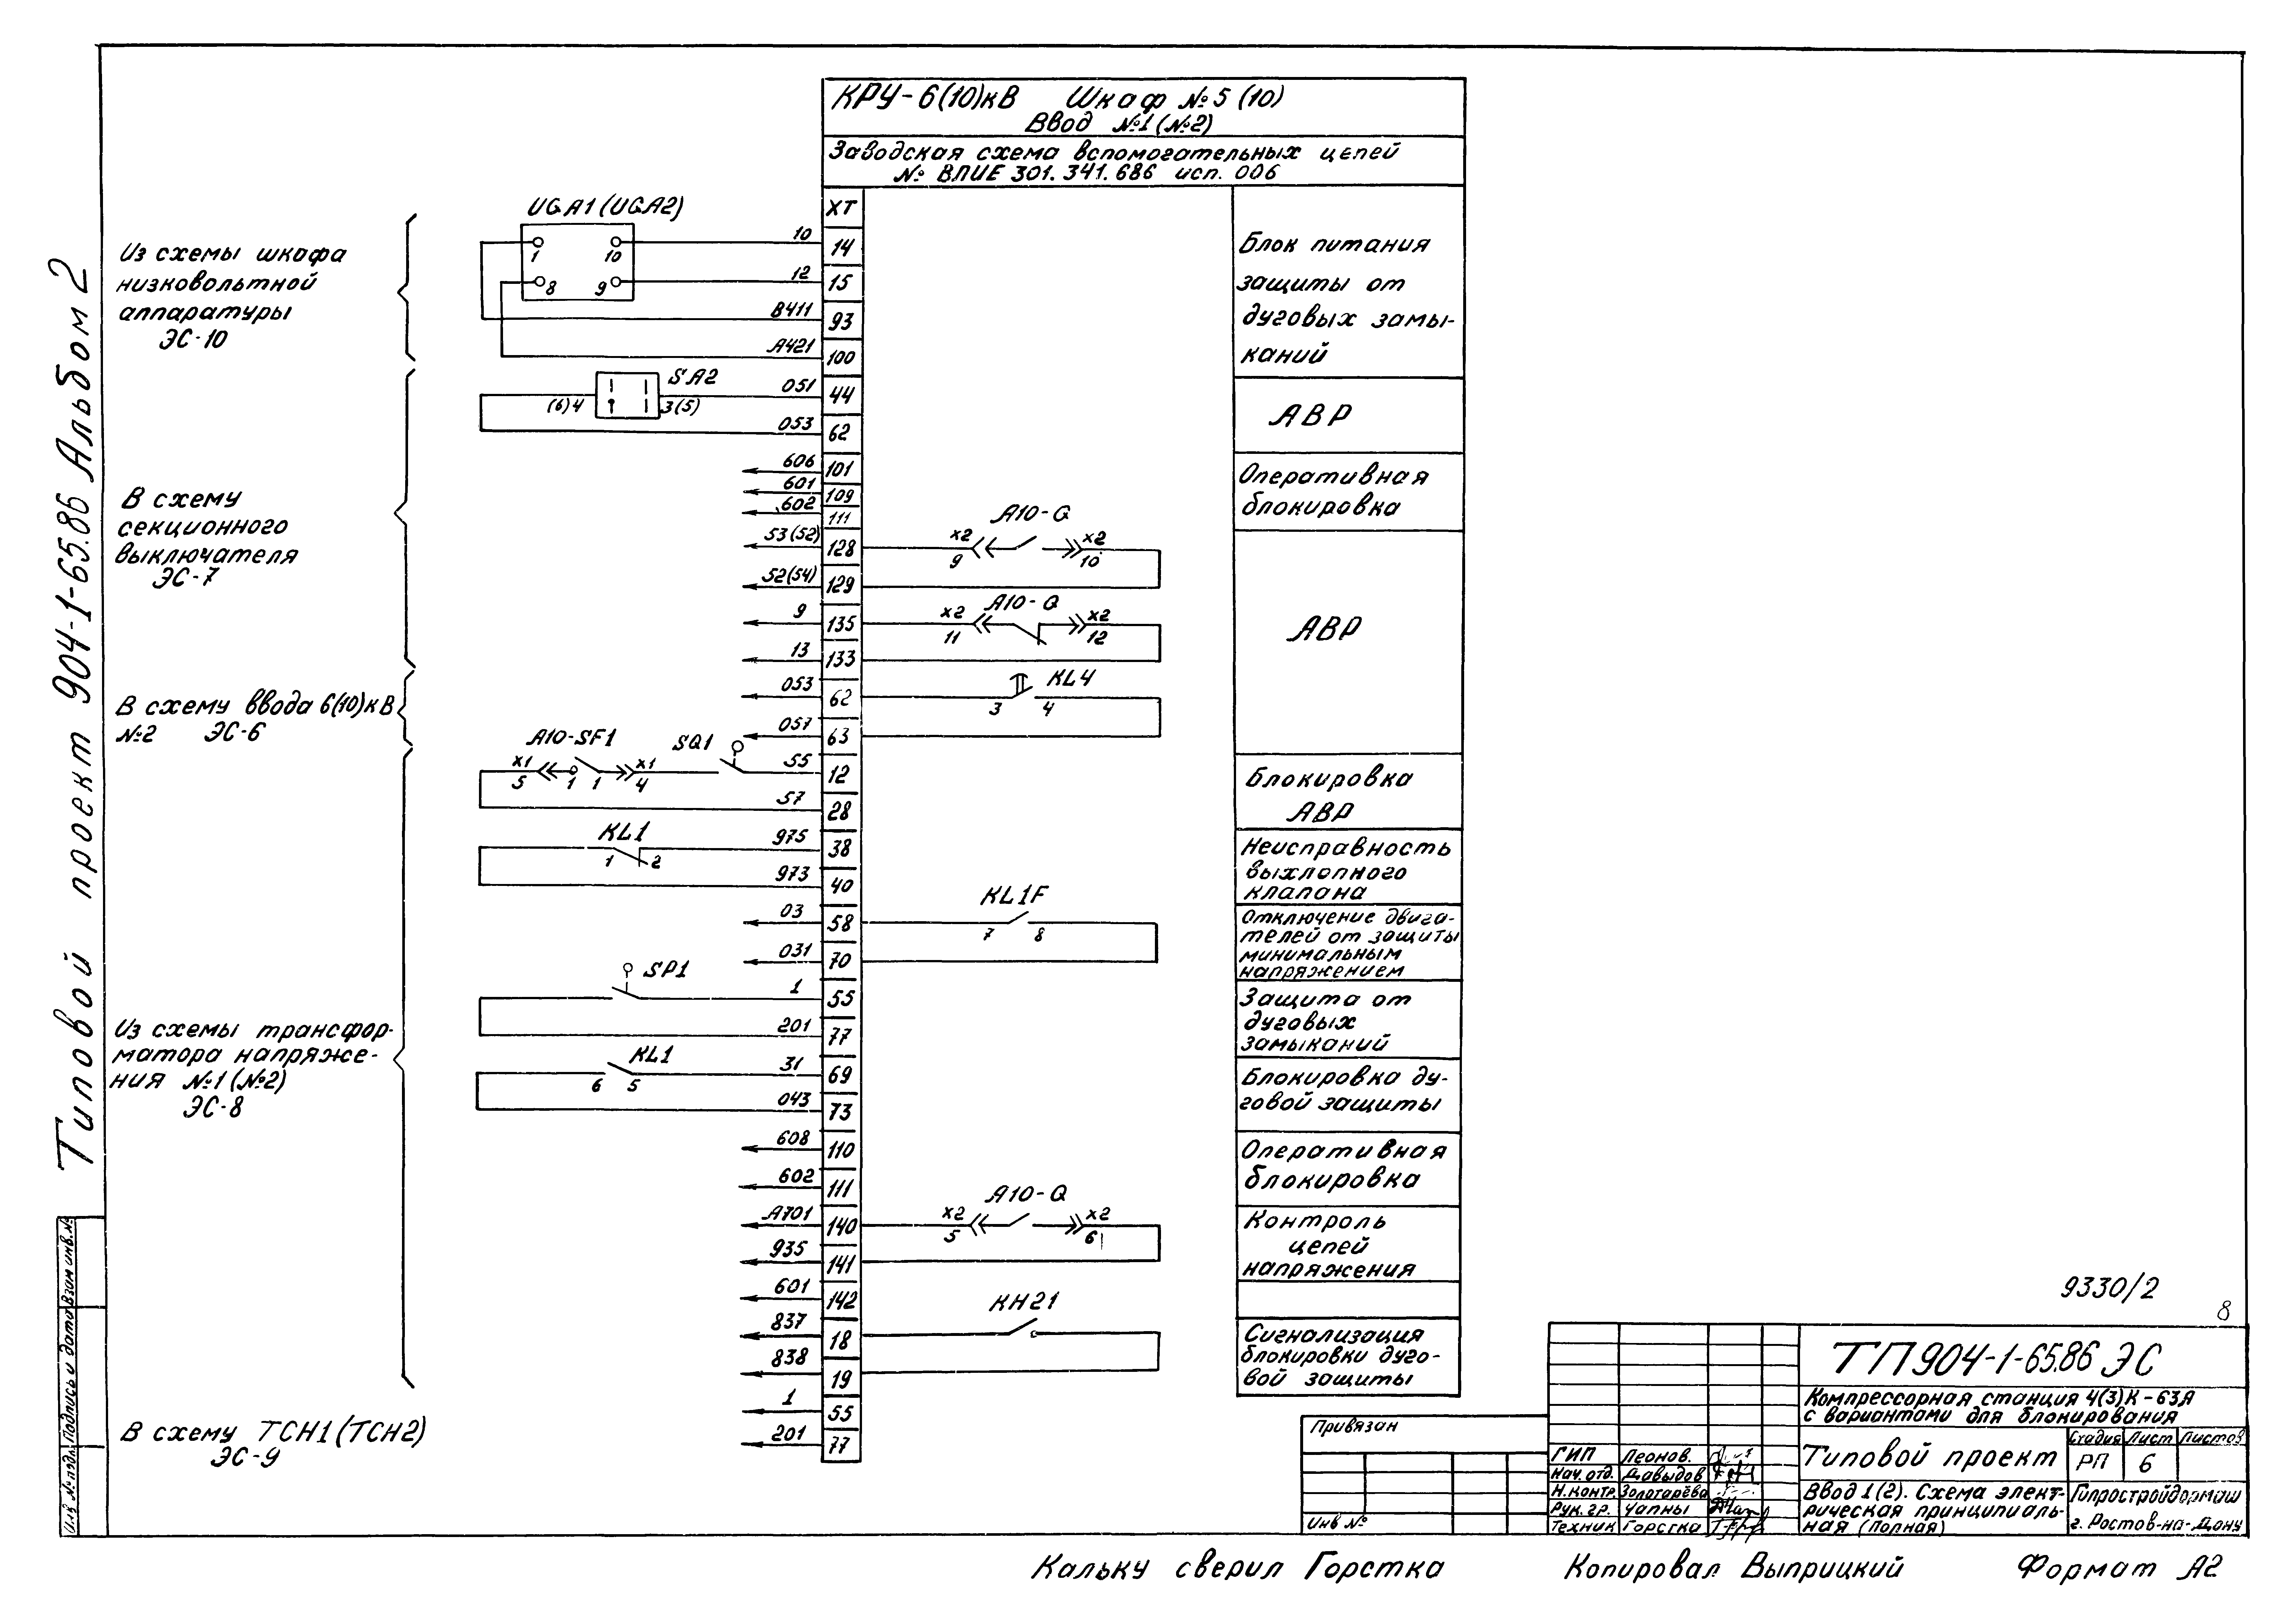 Типовой проект 904-1-65.86 Альбом 2
КРУ-6(10)кВ Шкаф №5 (10)
Ввод №1 (№2)
Заводская схема вспомогательных цепей
№ ВЛИЕ 301.341.686 исп. 006
ХТ
Из схемы шкафа
низковольтной
аппаратуры
ЭС-10
UGA1 (UGA2)
1
10
8
9
10
14
12
15
В411
93
А421
100
Блок питания
защиты от
дуговых замы-
каний
SA2
(6)4
3(5)
051
44
053
62
АВР
В схему
секционного
выключателя
ЭС-7
606
101
601
109
602
111
Оперативная
блокировка
53(52)
128
A10-Q
х2
9
х2
10
52(54)
129
9
135
A10-Q
х2
11
х2
12
13
133
АВР
В схему ввода 6(10)кВ
№2 ЭС-6
053
62
KL4
3
4
057
63
A10-SF1
SQ1
х1
5
1
1
х1
4
55
12
57
28
Блокировка
АВР
KL1
1
2
975
38
973
40
Неисправность
выхлопного
клапана
03
58
KL1F
7
8
031
70
Отключение двига-
телей от защиты
минимальным
напряжением
Из схемы трансфор-
матора напряже-
ния №1 (№2)
ЭС-8
SP1
1
55
201
77
Защита от
дуговых
замыканий
KL1
6
5
31
69
043
73
Блокировка ду-
говой защиты
608
110
602
111
Оперативная
блокировка
А701
140
A10-Q
х2
5
х2
6
935
141
Контроль
цепей
напряжения
601
142
837
18
КН21
838
19
Сигнализация
блокировки дуго-
вой защиты
В схему ТСН1 (ТСН2)
ЭС-9
1
55
201
77
9330/2
8
ТП904-1-65.86 ЭС
Компрессорная станция 4(3)К-63А
с вариантами для блокирования
Типовой проект
Стадия Лист Листов
РП 6
Ввод 1(2). Схема элект-
рическая принципиаль-
ная (полная)
Гипростройдормаш
г. Ростов-на-Дону
ГИП Леонов.
Нач. отд. Давыдов
Н.контр. Золотарёва
Рук. гр. Чапны
Техник Горстка
Привязан
Инв №
Инв № подл. Подпись и дата Взам инв.№
Кальку сверил Горстка Копировал Выприцкий Формат А2